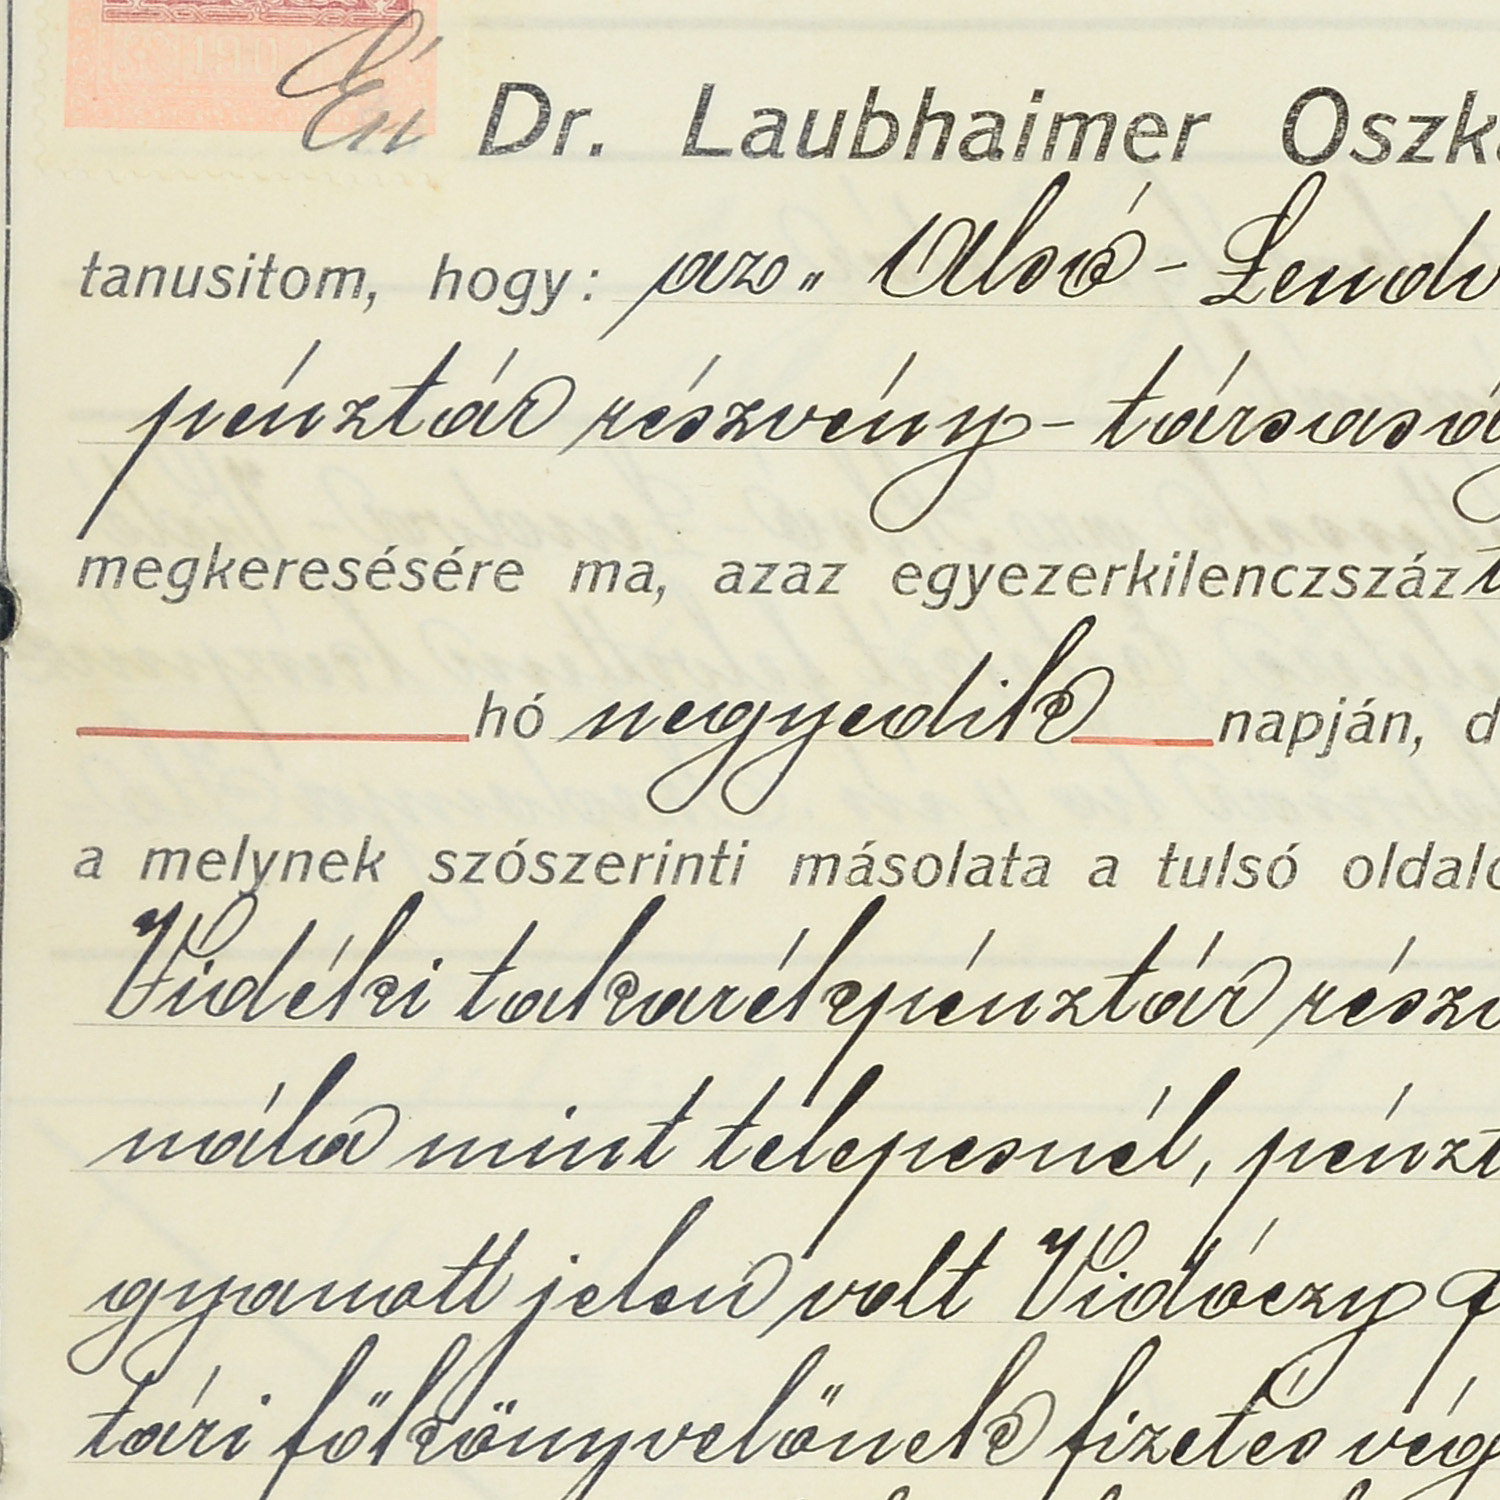 Én Dr. Laubhaimer Oszk
tanusitom, hogy: az „ Alsó-Lendv
pénztár részvény-társaság
megkeresésére ma, azaz egyezerkilenczszáz
hó negyedik napján, d
a melynek szószerinti másolata a tulsó oldalo
Vidéki takarékpénztár részv
nála mint telepesnél, pénzt
gyanott jelen volt Vidóczy
tári főkönyvelőnek fizetés vég